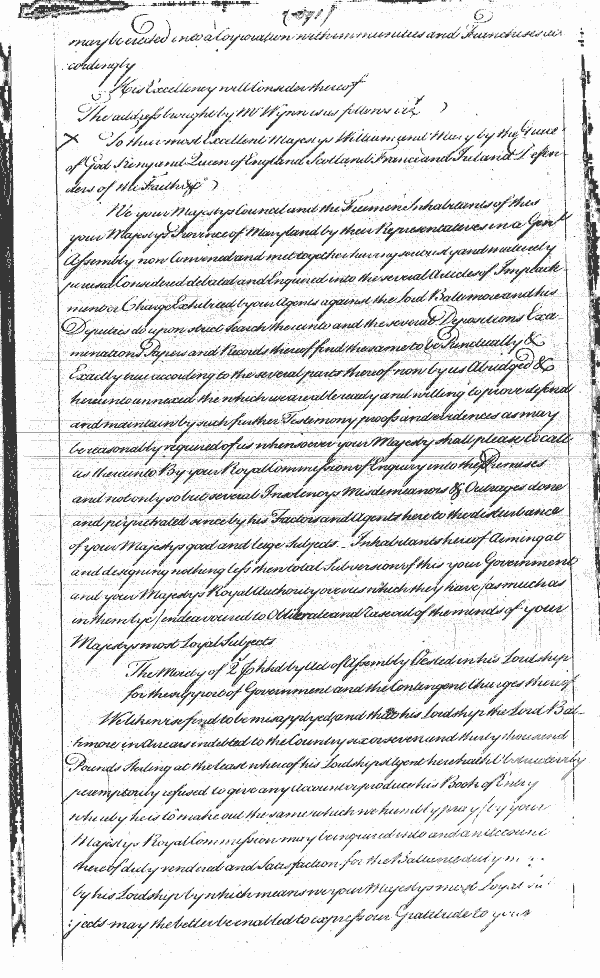 may be erected into a Corporation with immunities and Franchises ac
cordingly
His Excellency will Consider thereof
The address brought by Mr Wynn is as follows vizt
To their most Excellent Majestys William and Mary by the Grace
of God King and Queen of England Scotland France and Ireland Defen-
ders of the Faith &c
We your Majestys Council and the Freemen Inhabitants of this
your Majestys Province of Maryland by their Representatives in a Genll
Assembly now Convened and mett together having seriously and maturely
perused Considered debated and Enquired into the several Articles of Impeach
ment or Charge Exhibited by your Agents against the Lord Baltemore and his
Deputies do upon strict search thereinto and the several Depositions Exa-
minations Papers and Records thereof find the same to be Punctually &
Exactly true according to the several parts thereof now by us Abridged &
hereunto annexed the which we are able ready and willing to prove defend
and maintain by such further Testemony proofs and evidences as may
be reasonably required of us whensoever your Majesty shall please to call
us thereunto By your Royal Commission of Enquiry into the Premises
and not only so but several Insolencys Misdemeanors & Outrages done
and perpetrated since by his Factors and Agents here to the disturbance
of your Majestys good and leige Subjects Inhabitants hereof Aiming at
and designing nothing less then total Subversion of this your Government
and your Majestys Royal Authority over us which they have (as much as
in them lye) endeavoured to Obliterate and rase out of the minds of your
Majestys most Loyal Subjects
The Moiety of 2s hhd by Act of Assembly Vested in his Lordship
for the support of Government and the Contingent Charges thereof
We likewise find to be misapplyed and his Lordship the Lord Bal-
timore in Arears indebted to the Country six or seven and thirty thousand
Pounds Sterling at the least whereof his Lordships Agent here hath Obstinately
peremptorily refused to give any Account or produce his Book of Entry
whereby he is to make out the same which we humbly pray by your
Majestys Royal Commission may be inquired into and an Account
thereof duly rendered and Satisfaction for the Ballance
by his Lordship by which means we your Majestys most Loyal Sub
jects may the better be enabled to express our Gratitude to your